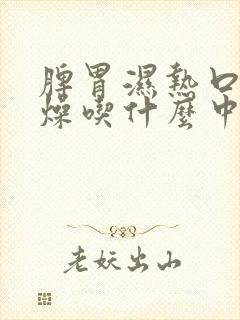 脾胃濕熱口
燥喫什麼中
老妖出山